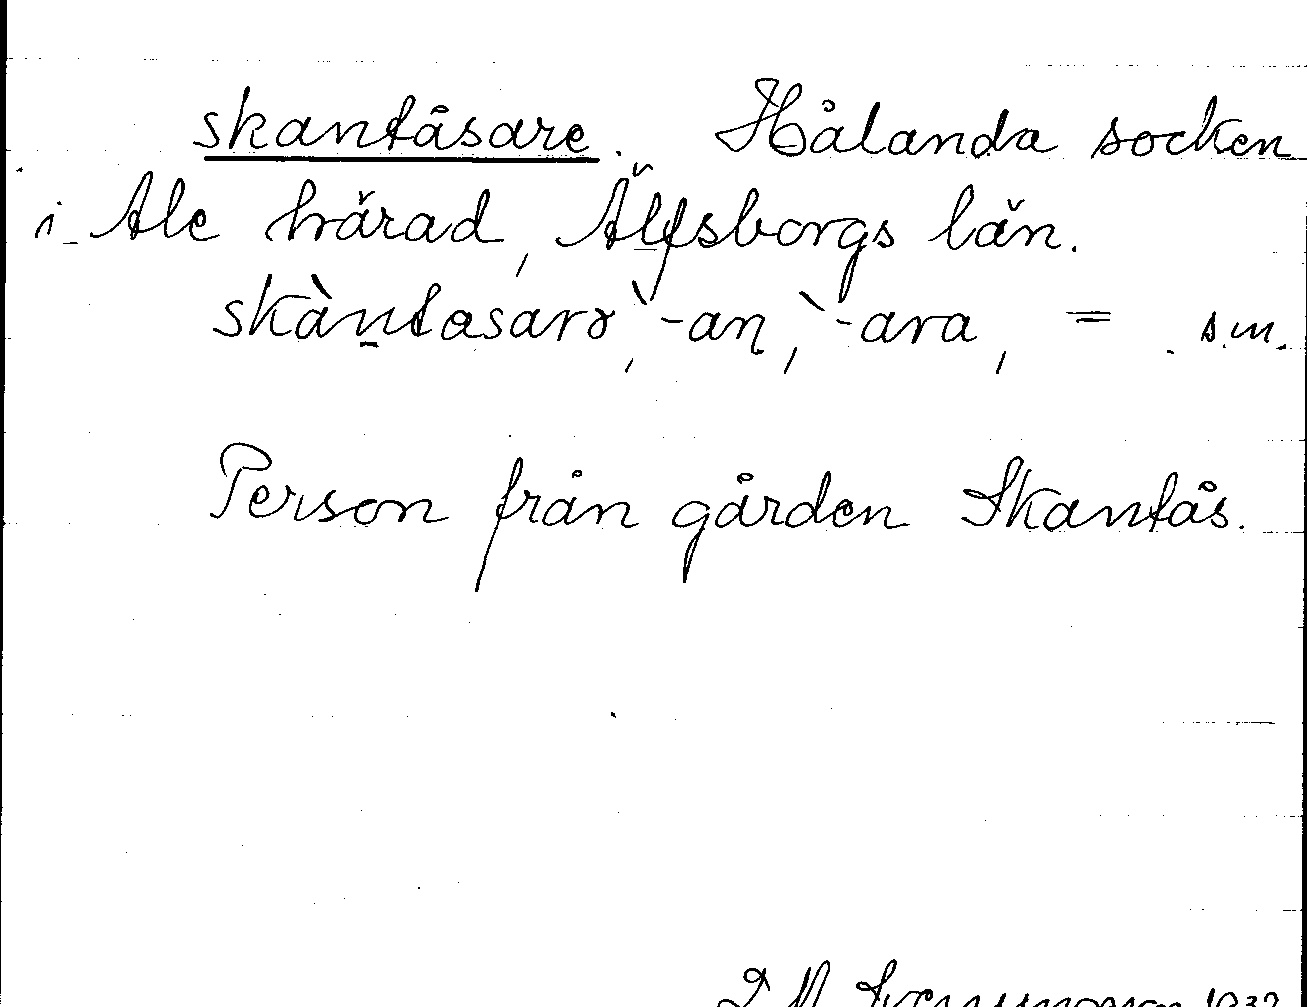 skantåsare. Hålanda socken
i Ale härad, Älfsborgs län.
skàntasarə, -an, -ara, = s.m.
Person från gården Skantås.